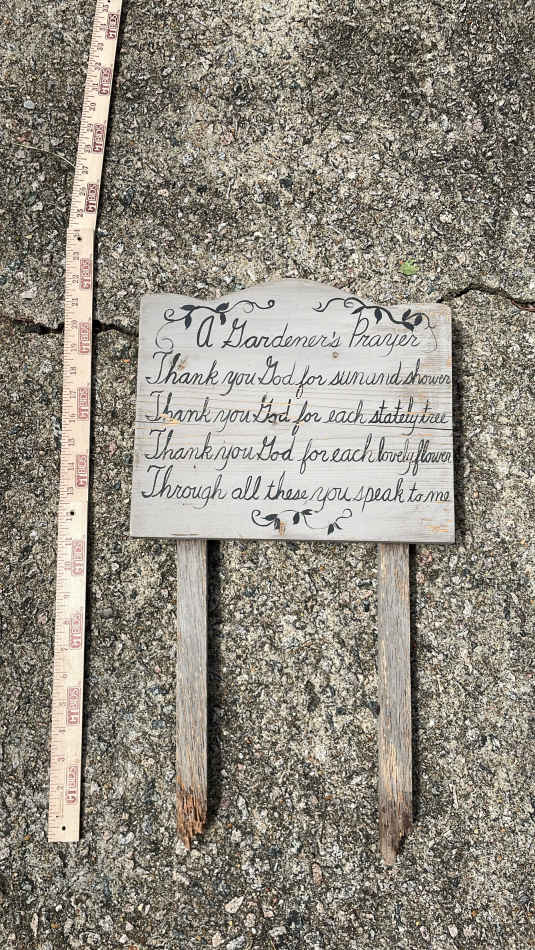 A Gardener's Prayer
Thank you God for sun and shower
Thank you God for each stately tree
Thank you God for each lovely flower
Through all these you speak to me